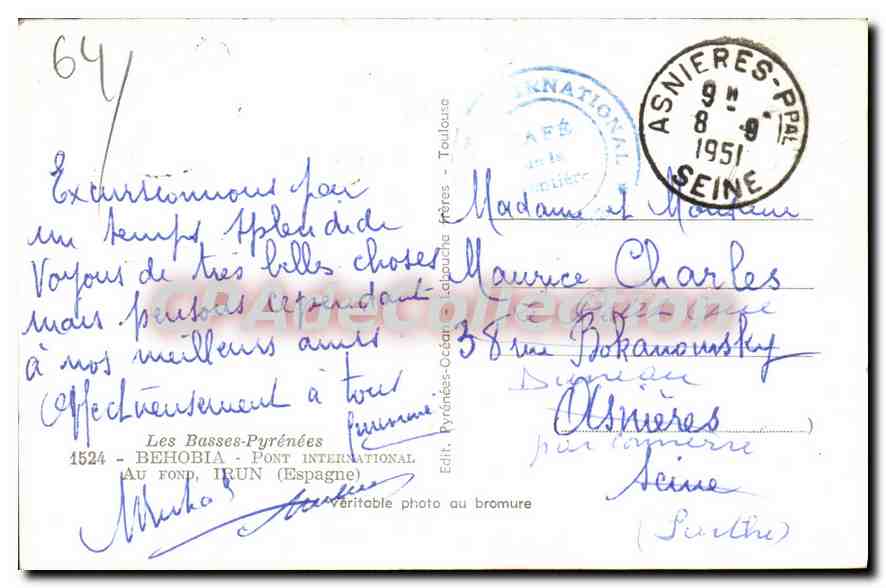 64
Excursionnons par
un temps splendide
Voyons de très belles choses
mais pensons cependant
à nos meilleurs amis
Affectueusement à tous
Les Basses-Pyrénées
1524 - BEHOBIA - PONT INTERNATIONAL
AU FOND, IRUN (Espagne)
Véritable photo au bromure
Edit. Pyrénées-Océan - Labouche Frères - Toulouse
ASNIERES-PPAL
9H
8 -9
1951
SEINE
Madame et Monsieur
Maurice Charles
38 rue Bokanowsky
Asnières
par Connerré
Seine
(Sarthe)
CPADeCollection